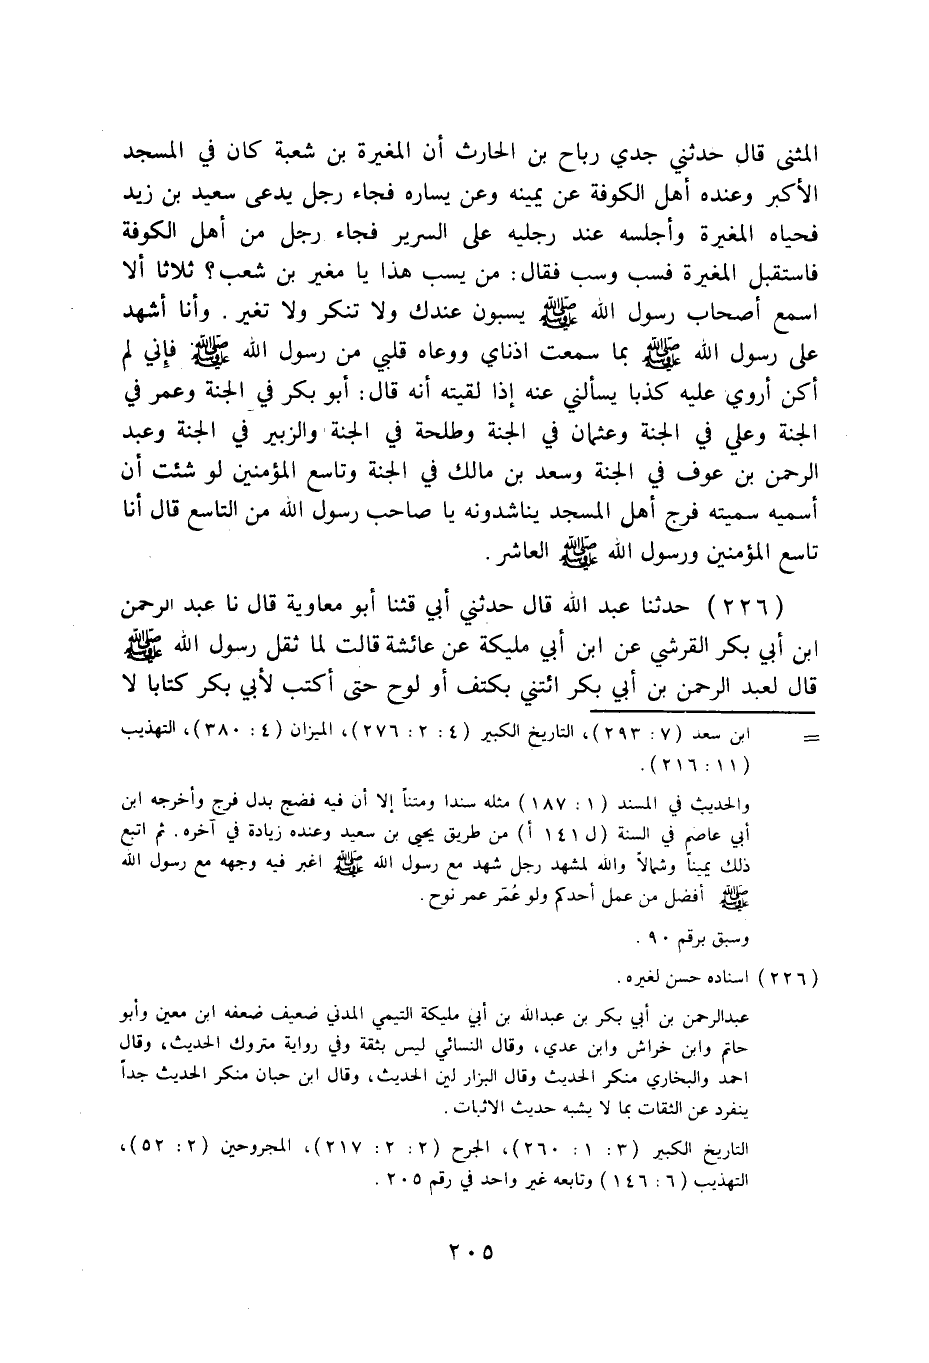 المثنى قال حدثني جدي رباح بن الحارث أن المغيرة بن شعبة كان في المسجد
الأكبر وعنده أهل الكوفة عن يمينه وعن يساره فجاء رجل يدعى سعيد بن زيد
فحياه المغيرة وأجلسه عند رجليه على السرير فجاء رجل من أهل الكوفة
فاستقبل المغيرة فسب وسب فقال: من يسب هذا يا مغير بن شعب؟ ثلاثا ألا
اسمع أصحاب رسول الله ﷺ يسبون عندك ولا تنكر ولا تغير. وأنا أشهد
على رسول الله ﷺ بما سمعت اذناي ووعاه قلبي من رسول الله ﷺ فإني لم
أكن أروي عليه كذبا يسألني عنه إذا لقيته أنه قال: أبو بكر في الجنة وعمر في
الجنة وعلي في الجنة وعثمان في الجنة وطلحة في الجنة والزبير في الجنة وعبد
الرحمن بن عوف في الجنة وسعد بن مالك في الجنة وتاسع المؤمنين لو شئت أن
أسميه سميته فرج أهل المسجد يناشدونه يا صاحب رسول الله من التاسع قال أنا
تاسع المؤمنين ورسول الله ﷺ العاشر.
(٢٢٦) حدثنا عبد الله قال حدثني أبي قثنا أبو معاوية قال نا عبد الرحمن
ابن أبي بكر القرشي عن ابن أبي مليكة عن عائشة قالت لما ثقل رسول الله ﷺ
قال لعبد الرحمن بن أبي بكر ائتني بكتف أو لوح حتى أكتب لأبي بكر كتابا لا
= ابن سعد (٧: ٢٩٣)، التاريخ الكبير (٤: ٢: ٢٧٦)، الميزان (٤: ٣٨٠)، التهذيب
(١١: ٢١٦).
والحديث في المسند (١: ١٨٧) مثله سندا ومتناً إلا أن فيه فضج بدل فرج وأخرجه ابن
أبي عاصم في السنة (ل ١٤١ أ) من طريق يحيى بن سعيد وعنده زيادة في آخره. ثم اتبع
ذلك يميناً وشمالاً والله لمشهد رجل شهد مع رسول الله ﷺ اغبر فيه وجهه مع رسول الله
ﷺ أفضل من عمل أحدكم ولو عُمّر عمر نوح.
وسبق برقم ٩٠.
(٢٢٦) اسناده حسن لغيره.
عبدالرحمن بن أبي بكر بن عبدالله بن أبي مليكة التيمي المدني ضعيف ضعفه ابن معين وأبو
حاتم وابن خراش وابن عدي، وقال النسائي ليس بثقة وفي رواية متروك الحديث، وقال
احمد والبخاري منكر الحديث وقال البزار لين الحديث، وقال ابن حبان منكر الحديث جداً
ينفرد عن الثقات بما لا يشبه حديث الاثبات.
التاريخ الكبير (٣: ١: ٢٦٠)، الجرح (٢: ٢: ٢١٧)، المجروحين (٢: ٥٢)،
التهذيب (٦: ١٤٦) وتابعه غير واحد في رقم ٢٠٥.
٢٠٥